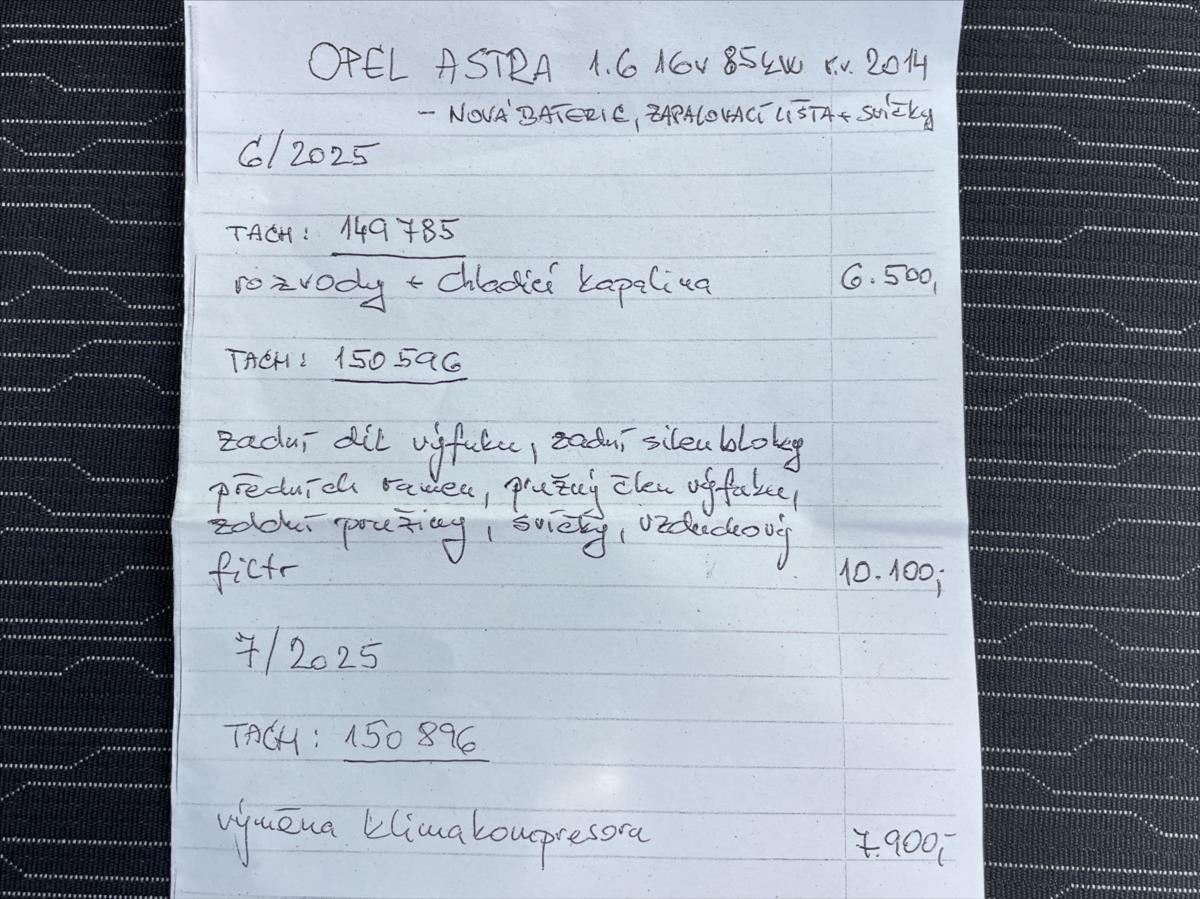 OPEL ASTRA 1.6 16v 85kW r.v. 2014
- NOVÁ BATERIE, ZAPALOVACÍ LIŠTA + svíčky
6/2025
TACH: 149785
rozvody + chladící kapalina 6.500,
TACH: 150596
zadní díl výfuku, zadní silenbloky
předních ramen, pružný člen výfuku,
zadní pružiny, svíčky, vzduchový
filtr 10.100,-
7/2025
TACH: 150896
výměna klimakompresora 7.900,-